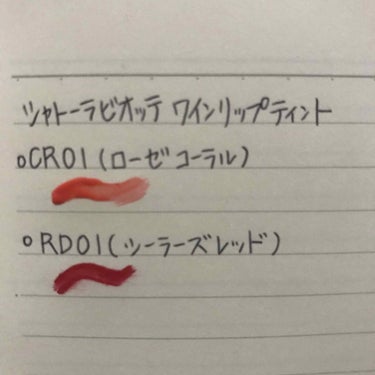 シャトーラビオッテ ワインリップティント
○CR01(ローゼコーラル)
○RD01(シーラーズレッド)